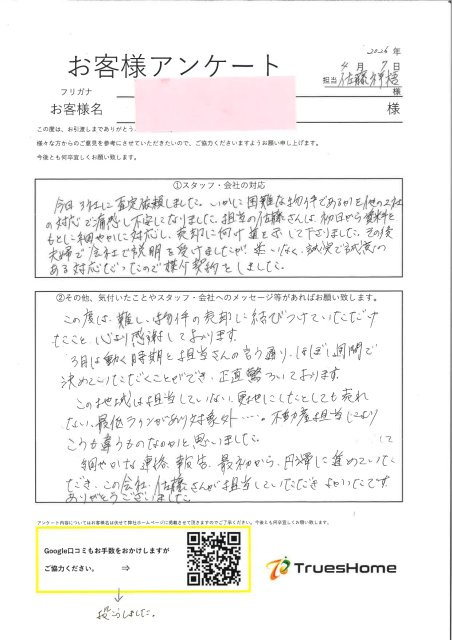 2026年
4月7日
お客様アンケート
担当 佐藤祥悟
フリガナ
様
お客様名
様
この度は、お引渡しまでありがとう
様々な方からのご意見を参考にさせていただきたいので、ご協力くださいますようお願い申し上げます。
今後とも何卒宜しくお願い致します。
①スタッフ・会社の対応
今回3社に査定依頼しました。いかに困難な物件であるかを他の2社
の対応で痛感し不安になりました。担当の佐藤さんは初日から資料を
もとに細やかに対応し、売却に向け道を示して下さいました。その後
夫婦で会社で説明を受けましたが、迷いなく、誠実で誠意の
ある対応だったので媒介契約をしました。
②その他、気付いたことやスタッフ・会社へのメッセージ等があればお願い致します。
この度は、難しい物件の売却に結びつけていただけ
たこと、心より感謝しております。
3月は動く時期と担当さんの言う通り、ほぼ1週間で
決めていただくことができ、正直驚いております。
この地域は担当していない、更地にしたとしても売れ
ない、最低ラインがあり対象外……。不動産担当により
こうも違うものなのかと思いました。
細やかな連絡、報告、最初から、円滑に進めていた
だき、この会社、佐藤さんが担当していただき よかったです。
ありがとうございました。
アンケート内容についてはお客様名は伏せて弊社ホームページに掲載させて頂きますのでご了承ください。今後とも何卒宜しくお願い致します。
Google口コミもお手数をおかけしますが
ご協力ください。 ⇒
TruesHome
投こうしました。